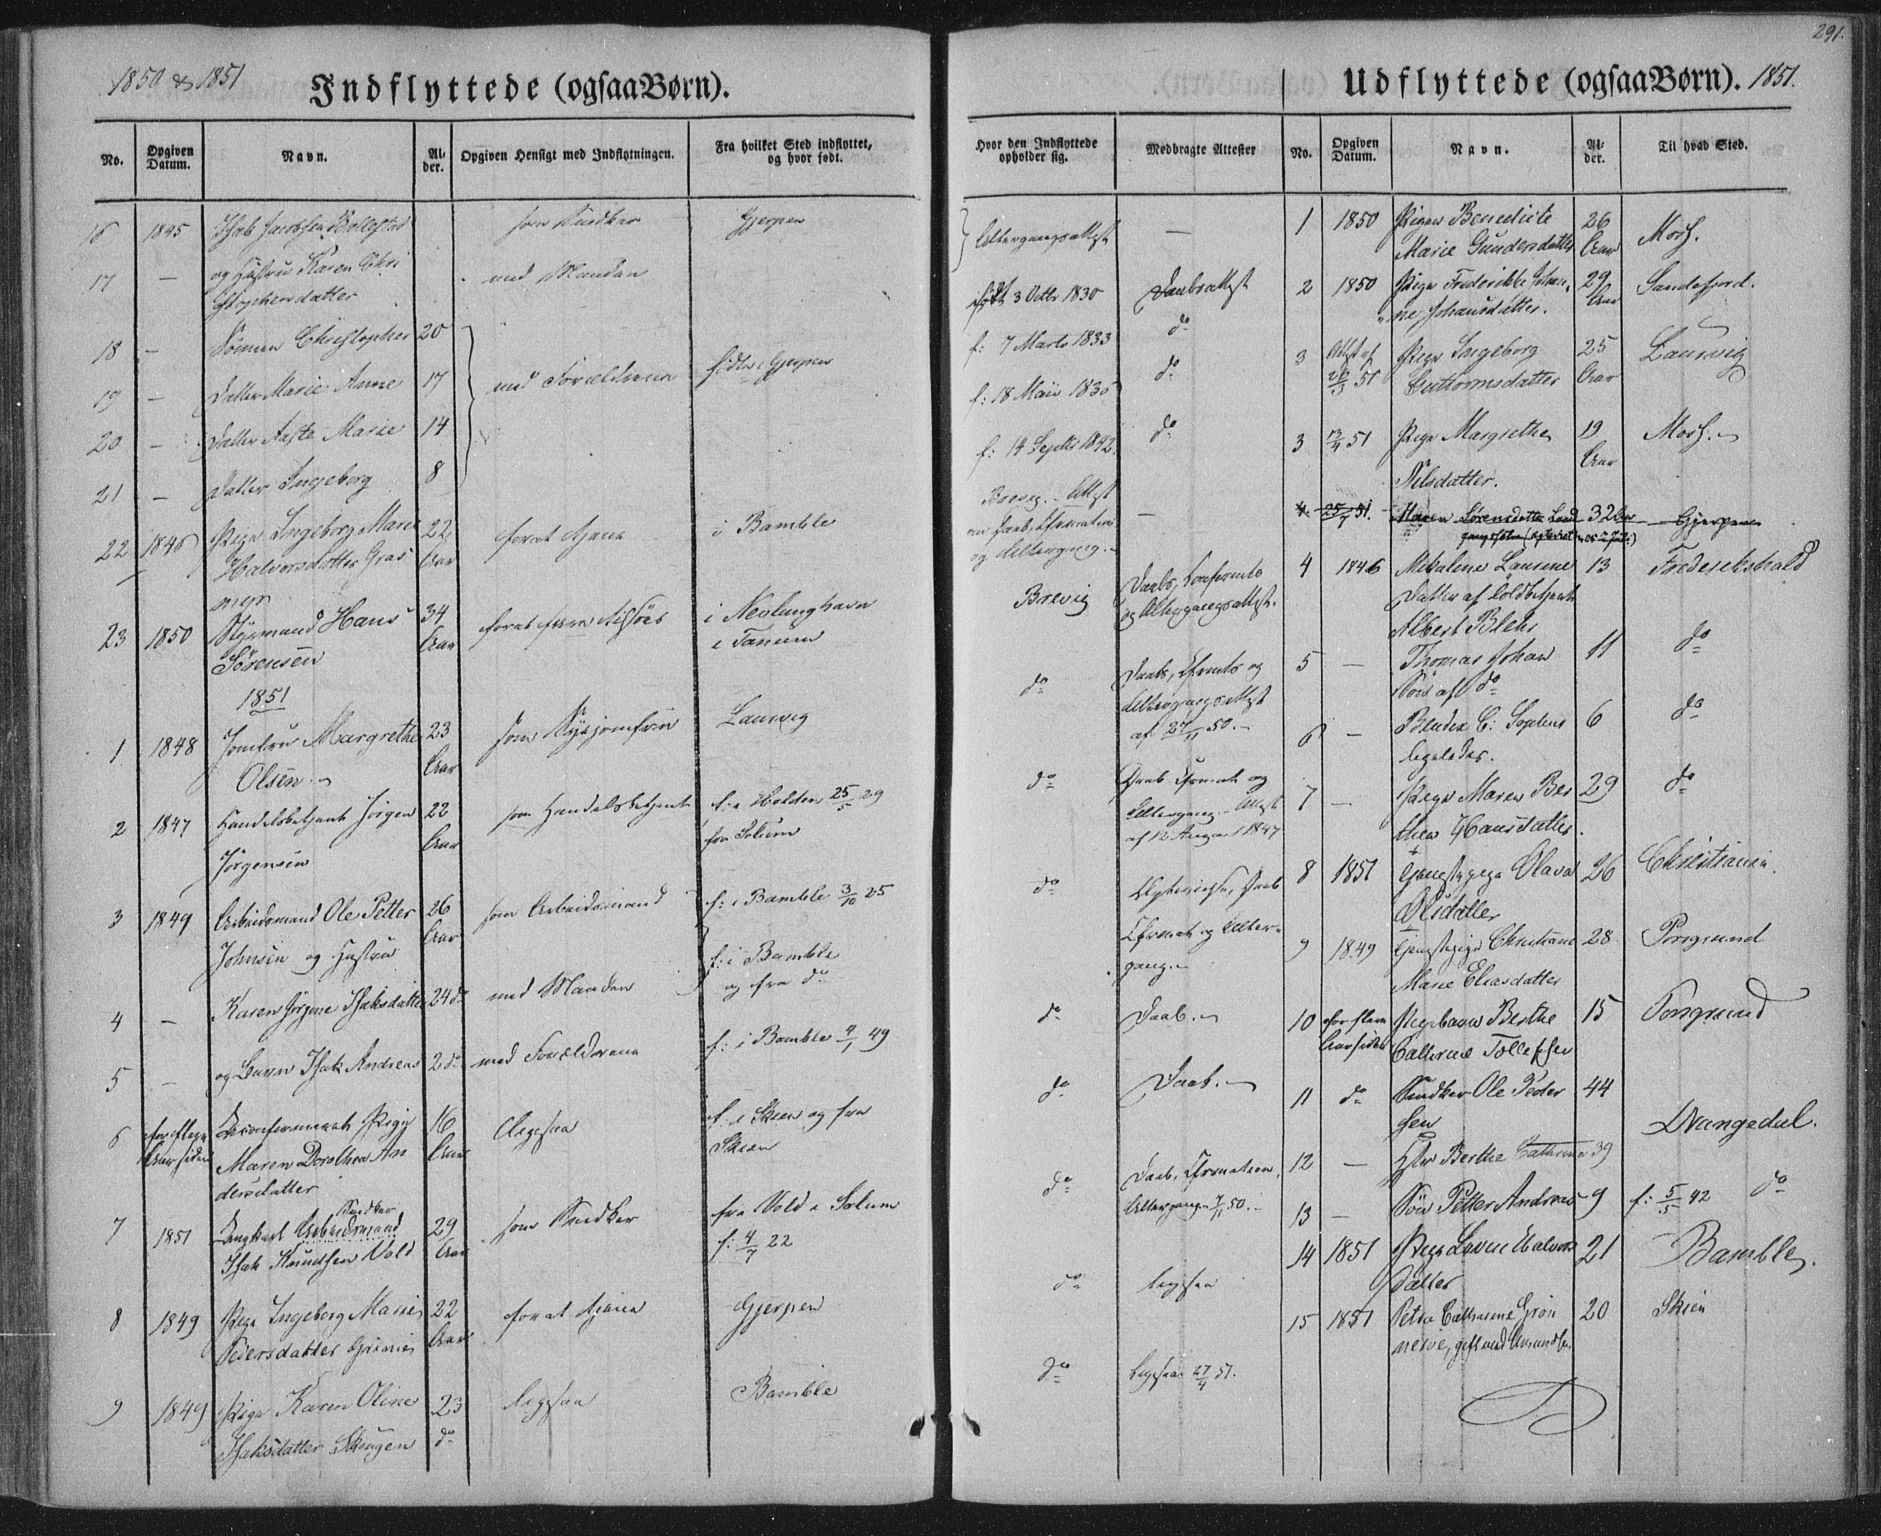 1850 & 1851
Indflyttede (ogsaa Børn).
No.
Opgiven Datum.
Navn.
Alder.
Opgiven Hensigt med Indflytningen.
Fra hvilket Sted indflyttet, og hvor født.
16 1845 Isak Jacobsen som Snedker Gjerpen
17 — og Hustru Karen Chri med Manden
stophersdatter
18 — Sønnen Christopher 20
19 — Datter Marie Anne 17 med Forældrene født i Gjerpen
20 — Datter Aaste Marie 14
21 — Datter Ingeborg 8
22 1846 Pige Ingeborg Marie 22 for at tjene i Bamble
Halvorsdatter Gras Aar
myr
23 1850 Styrmand Hans 34 for at fare tilsøes i Nevlunghavn
Sørensen Aar i Tanum
1851
1 1848 Jomfru Margrethe 23 som Syejomfru Laurvig
Olsen Aar
2 1847 Handelsbetjent Jørgen 22 som Handelsbetjent f: i Holden 25/5 29
Jørgensen Aar fra Solum
3 1849 Arbeidsmand Ole Petter 26 som Arbeidsmand f: i Bamble 3/10 25
Johnsen og Hustru Aar
4 — Karen Jørgine Isaksdatter 24 do med Manden f: i Bamble
og fra do
5 — og Barn Isak Andreas 2 do med Forældrene f: i Bamble 4/1 49
6 for flere Aar siden Uconfirmeret Pige 16 Ligesaa f: i Skien og fra
Maren Dorothea An Aar Skien
dersdatter
Snedker
7 1851 Ungkarl Arbeidsmand 29 som Snedker fra Vold i Solum
Isak Knudsen Vold Aar f: 4/7 22
8 1849 Pige Ingeborg Marie 22 for at tjene Gjerpen
Pedersdatter Aar
9 1849 Pige Karen Oline 23 ligesaa Bamble
Isaksdatter Skougen do
291.
Udflyttede (ogsaa Børn). 1851.
Hvor den Indflyttede opholder sig.
Medbragte Attester
No.
Opgiven Datum.
Navn.
Alder.
Til hvad Sted.
Altergangsattest —
født 3 Octbr 1830 Daabsattest
f: 7 Marts 1833 do
f: 18 Maii 1835 do
f: 14 Septbr 1842 do
Brevig. Attest —
om Daab, Cfirmation
og Altergang.
Brevig Daabs, Confirmts
og Altergangsattest.
do Daabs, Cfirmts og
Altergangsattest
af 27/11 50.
do Daab Cfirmat. og
Altergang. Attest
af 12 August 1847
do Daab
Cfirmat. og Alter-
gang.
do Daab.
do Daab.
do Daab, Cfirmation,
Altergang 7/11 50.
do ligesaa
do Ligesaa 27/4 51.
1 1850 Pigen Benedicte 26 Moss.
Marie Gundersdatter Aar
2 1850 Pige Frederikke Johan- 29 Sandefjord.
ne Johansdatter. Aar
3 Attest af 20/3 51 Pige Ingeborg 25 Laurvig
Guttormsdatter Aar
3 13/4 51 Pige Margrethe 19 Moss.
Nilsdatter. Aar
4 25/4 51. Maren Sørensdatter 32 Aar Gjerpen
4 1846 Mikaline Laurine 13 Frederikshald
Datter af Toldbetjent
Albert Blehr
5 — Thomas Johan 11 do
Søn af do
6 — C: Sophus 6 do
ligeledes.
7 — Pige Maren Ber 29 do
thea Hansdatter.
8 1851 Tjenestepige Olava 26 Christiania
Olsdatter
9 1849 Tjenestepige Christiane 28 Porsgrund
Marie Eliasdatter
10 for flere Aar siden Pigebarn Berthe 15 Porsgrund
Cathrine Tollefsen
11 do Snedker Ole Peder 44
sen Drangedal.
12 — Hstr Berthe Cathrine 39
13 — Søn Petter Andreas 9 f: 5/5 42 do
14 1851 Pige Lovise Halvors 21 Bamble.
Datter
15 1851 Petra Cathrine Grøn 20 Skien
gift med Amundsen